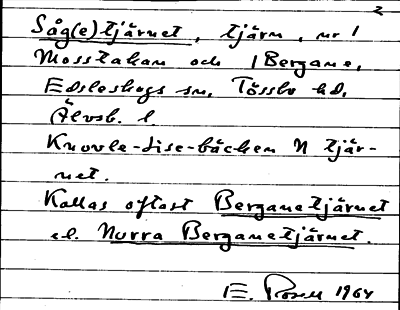 2
Såg(e)tjärnet, tjärn, nr 1
Mosstakan och 1 Bergane,
Edsleskogs sn, Tössbo hd,
Älvsb. l.
Knovle-Lise-bäcken N tjär-
net.
Kallas oftast Berganetjärnet
el. Norra Berganetjärnet.
E. Rosell 1964